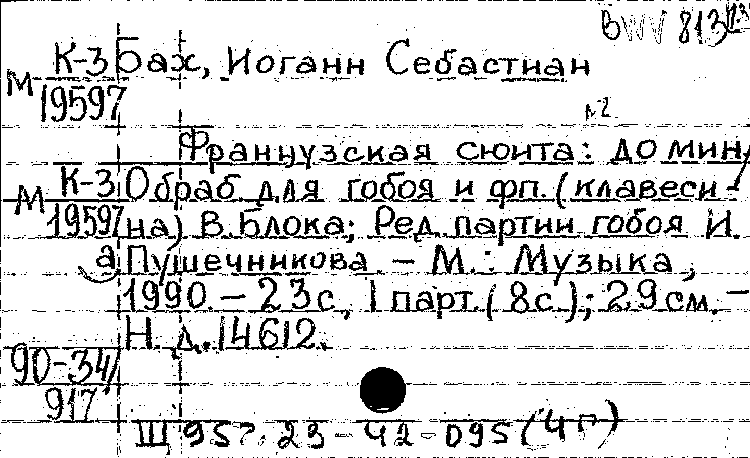 BWV 813
М К-3 Бах, Иоганн Себастиан
19597
№2
Французская сюита: до мин/
М К-3 Обраб. для гобоя и фп. (клавеси-
19597 на) В. Блока; Ред. партии гобоя И.
а Пушечникова. – М.: Музыка,
1990. – 23 с., 1 парт. (8 с.); 29 см. –
Н. д. 14612.
90-34/
917
Щ 957.23-42-095 (4Г)